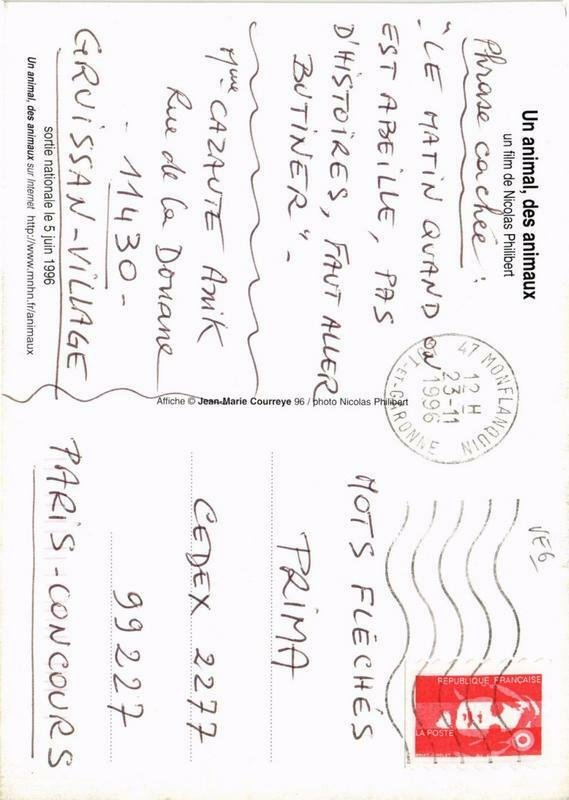 Un animal, des animaux
un film de Nicolas Philibert
Phrase cachée :
"LE MATIN QUAND ON
EST ABEILLE, PAS
D'HISTOIRES, FAUT ALLER
BUTINER"-
Mme CAZAUTE Anik
Rue de la Douane
- 11430 -
GRUISSAN-VILLAGE
sortie nationale le 5 juin 1996
Un animal, des animaux sur Internet http://www.mnhn.fr/animaux
Affiche © Jean-Marie Courreye 96 / photo Nicolas Philibert
47 MONFLANQUIN
12 H
23-11
1996
LOT-ET-GARONNE
VE6
RÉPUBLIQUE FRANÇAISE
LA POSTE
MOTS FLÉCHÉS
PRIMA
CEDEX 2277
99227
PARIS-CONCOURS